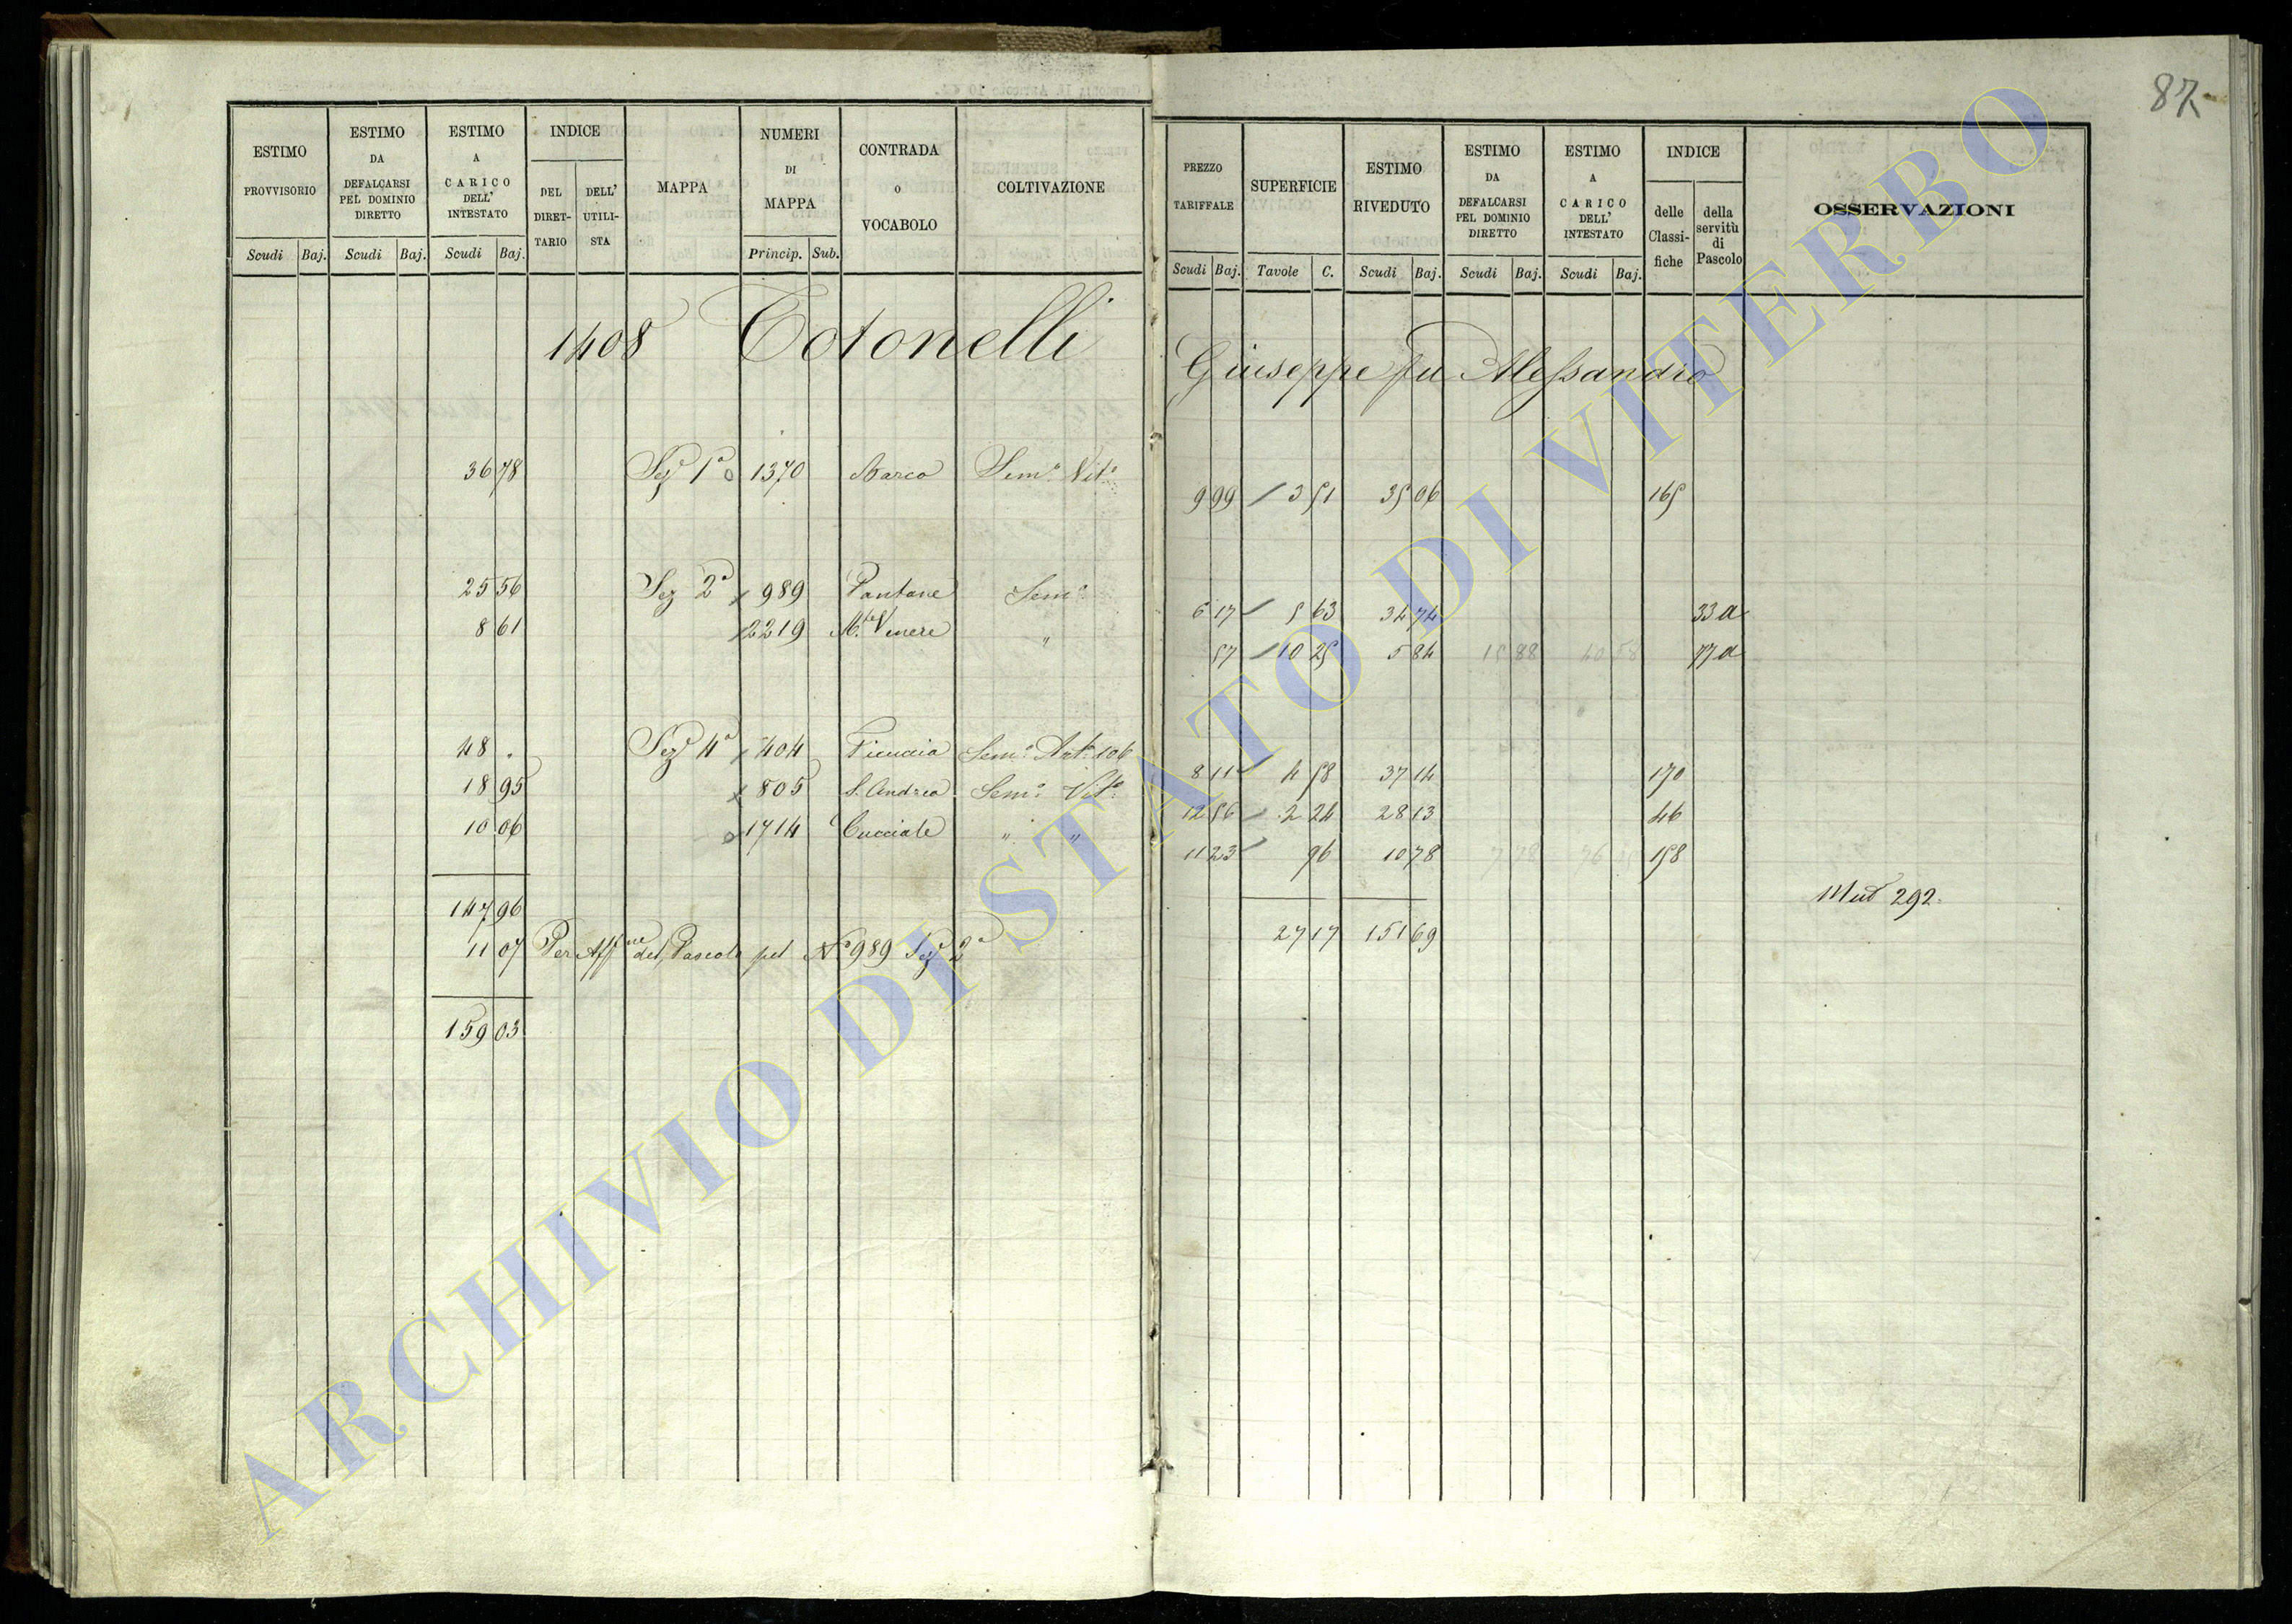 87
ESTIMO PROVVISORIO
ESTIMO DA DEFALCARSI PEL DOMINIO DIRETTO
ESTIMO A CARICO DELL' INTESTATO
INDICE
DEL DIRET-TARIO
DELL' UTILI-STA
MAPPA
NUMERI DI MAPPA
CONTRADA o VOCABOLO
COLTIVAZIONE
Scudi Baj. Scudi Baj. Scudi Baj. Princip. Sub.
1408 Totonelli
36 78 Sez.e 1a 1370 Barco Sem.o Vit.o
25 56 Sez 2a 989 Pantane Sem.o
8 61 2219 M.te Venere "
48 . Sez.e 4a 404 Ficuccia Sem.o 106
18 95 805 S. Andrea Sem.o Vit.o
10 06 1714 Cucciale " "
147 96
11 07 Per Aff.ne del Pascolo pel N.o 989 Sez.e 2a
159 03
PREZZO TARIFFALE
SUPERFICIE
ESTIMO RIVEDUTO
ESTIMO DA DEFALCARSI PEL DOMINIO DIRETTO
ESTIMO A CARICO DELL' INTESTATO
INDICE
delle Classi-fiche
della servitù di Pascolo
OSSERVAZIONI
Scudi Baj. Tavole C. Scudi Baj. Scudi Baj. Scudi Baj.
Giuseppe fu Alessandro
9 99 3 51 35 06 165
6 17 5 63 34 74 33 a
57 10 25 5 84 15 88 40 58 77 a
8 11 4 58 37 14 170
12 56 2 24 28 13 46
11 23 96 10 78 158
Mut 292.
27 17 151 69
ARCHIVIO DI STATO DI VITERBO